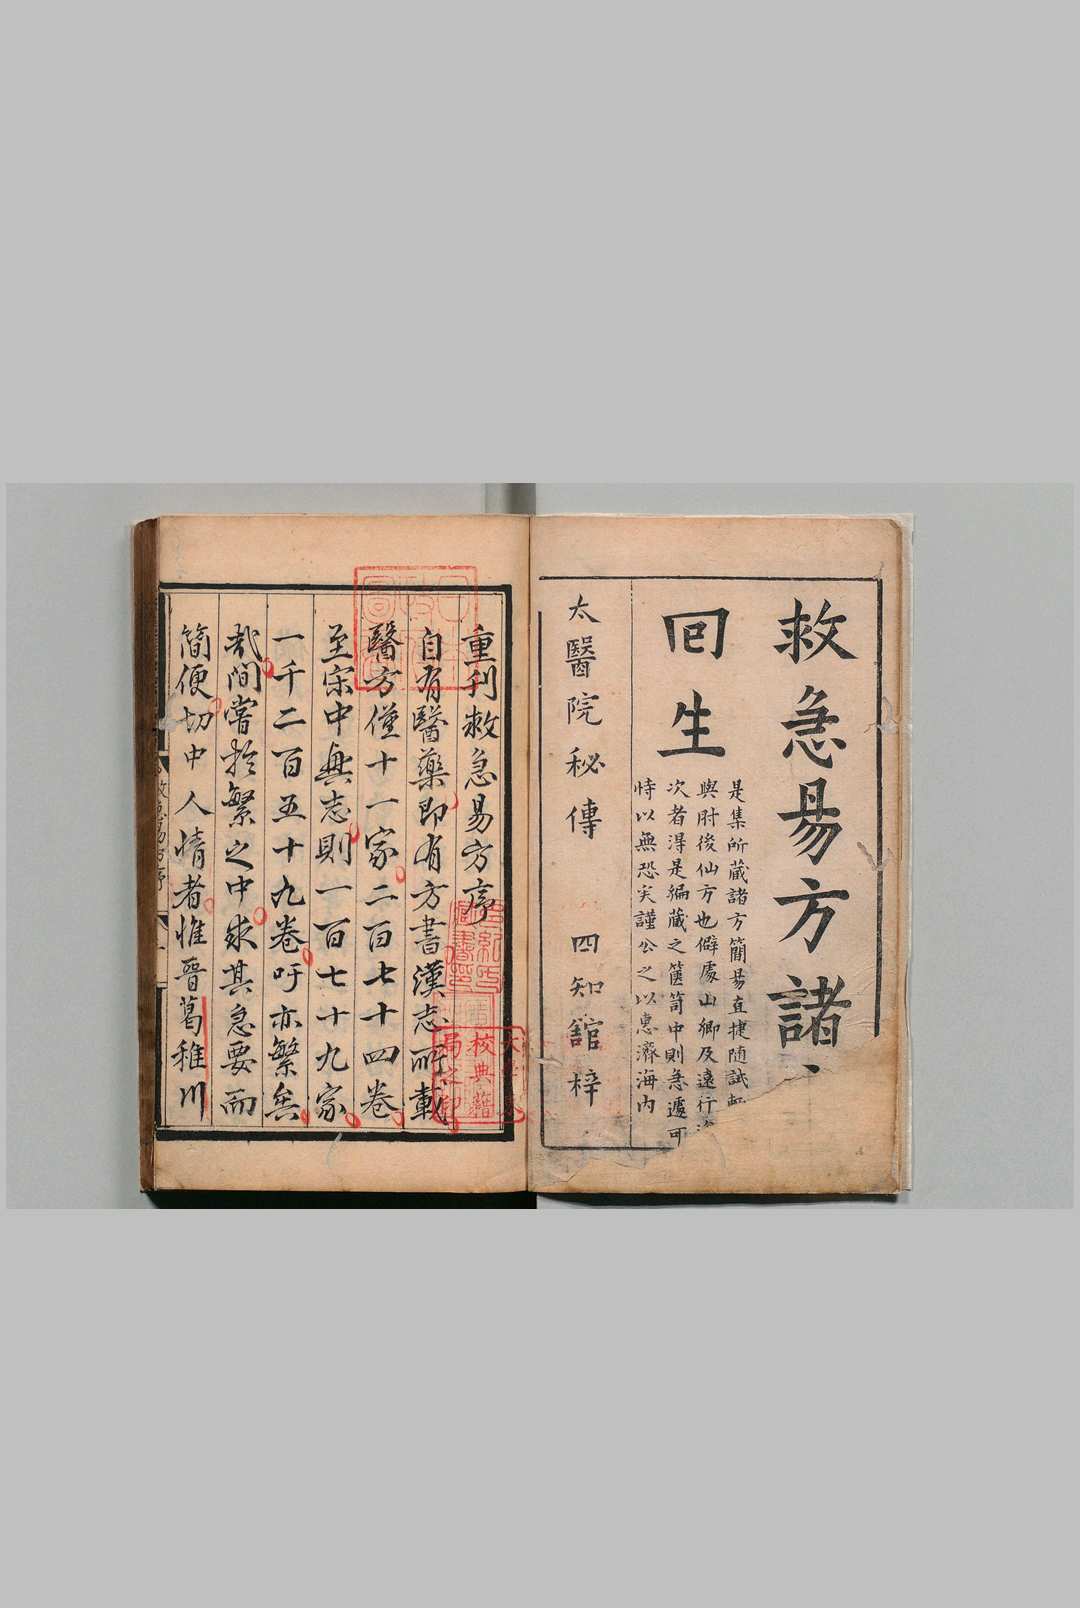 救急易方諸
回生
是集所蔵諸方簡易直捷随試
與肘後仙方也僻處山鄉及遠行
次者得是編蔵之篋笥中則急遽可
恃以無恐矣謹公之以惠濟海内
太醫院秘傳 四知舘梓
重刊救急易方序
自有醫藥即有方書漢志所載
醫方僅十一家二百七十四卷
至宋中興志則一百七十九家
一千二百五十九卷吁亦繁矣
哉間嘗於繁之中求其急要而
簡便切中人情者惟晉葛稚川
救急易方序